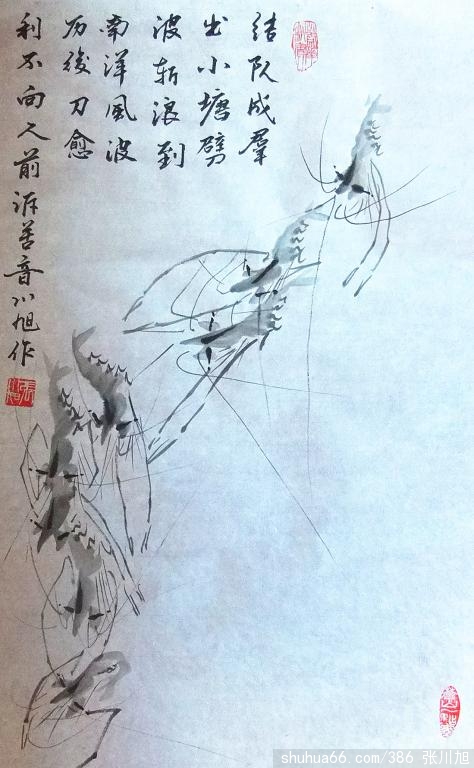 结队成羣
出小塘劈
波斩浪到
南洋风波
历後刀愈
利不向人前诉音川旭作
shuhua66.com/386 张川旭